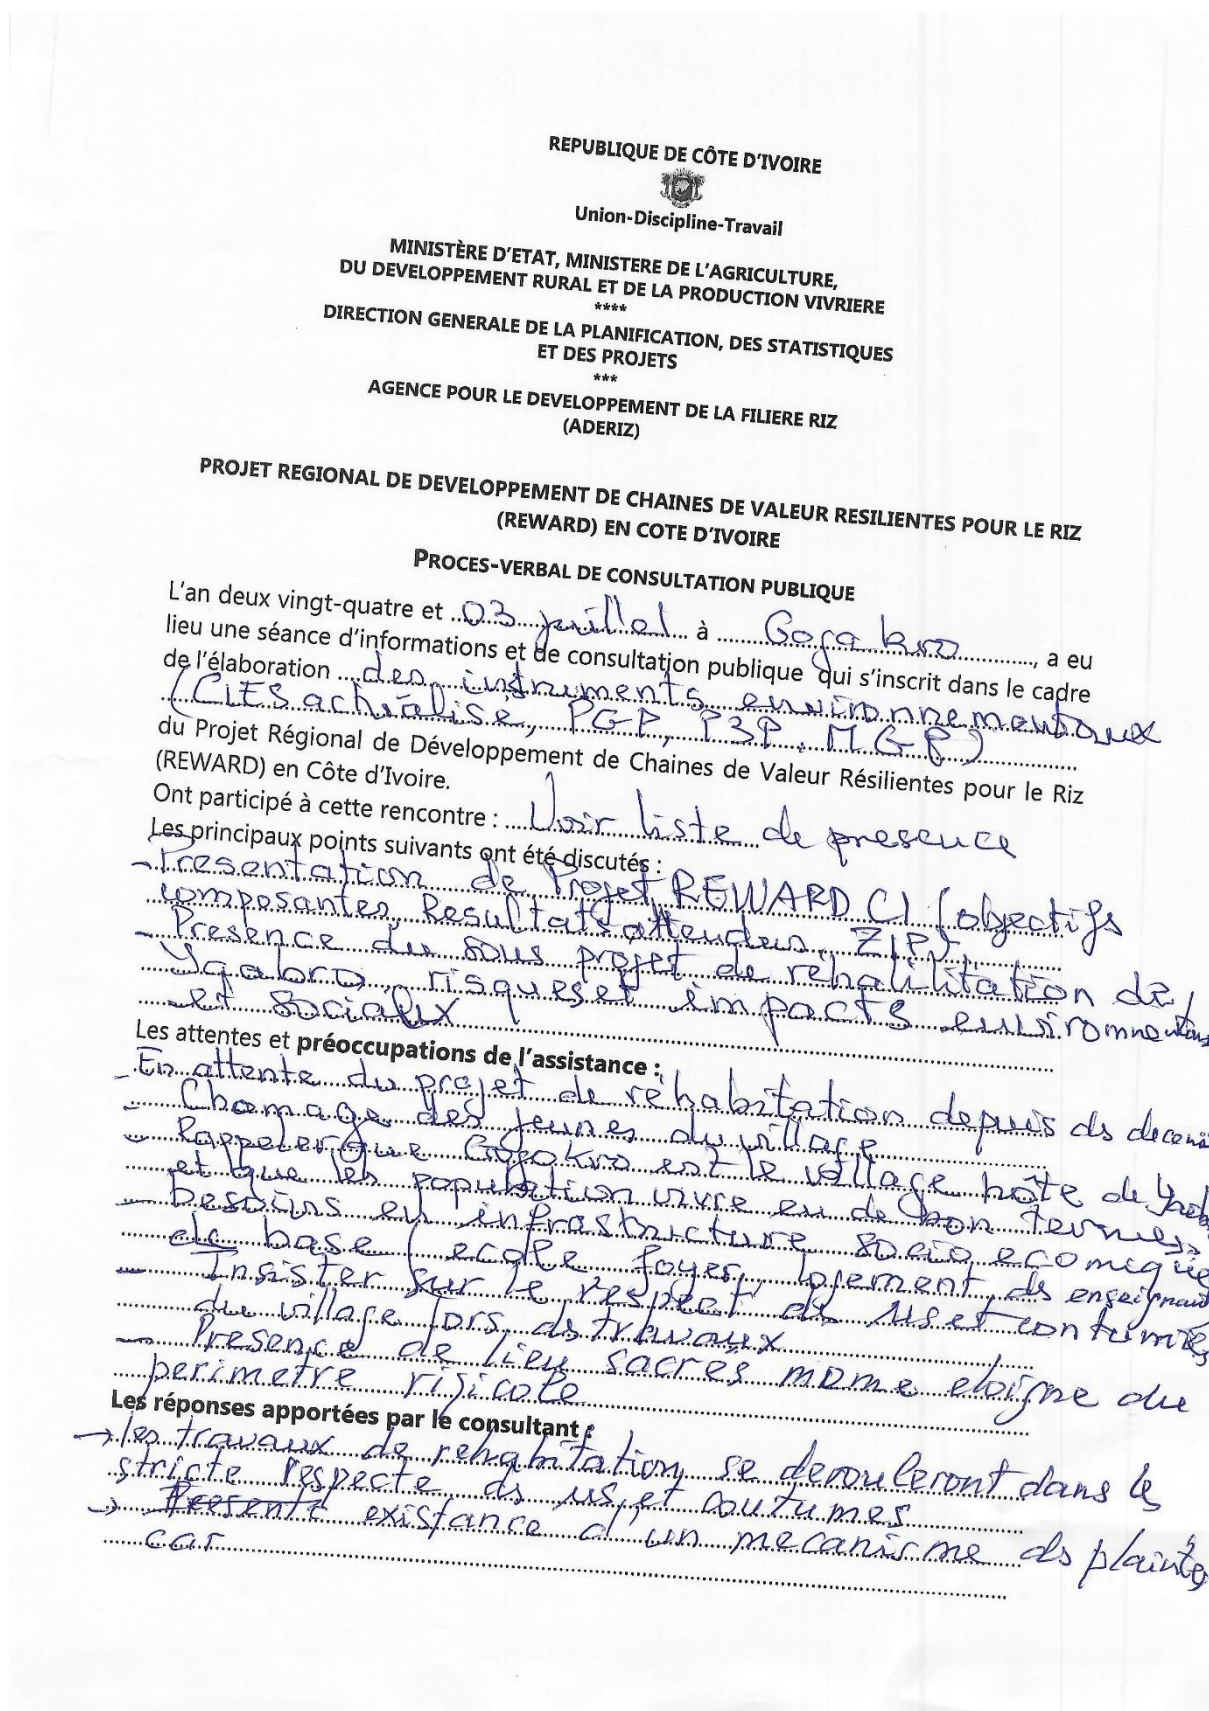 REPUBLIQUE DE CÔTE D'IVOIRE
Union-Discipline-Travail
MINISTÈRE D'ETAT, MINISTERE DE L'AGRICULTURE,
DU DEVELOPPEMENT RURAL ET DE LA PRODUCTION VIVRIERE
****
DIRECTION GENERALE DE LA PLANIFICATION, DES STATISTIQUES
ET DES PROJETS
***
AGENCE POUR LE DEVELOPPEMENT DE LA FILIERE RIZ
(ADERIZ)
PROJET REGIONAL DE DEVELOPPEMENT DE CHAINES DE VALEUR RESILIENTES POUR LE RIZ
(REWARD) EN COTE D'IVOIRE
PROCES-VERBAL DE CONSULTATION PUBLIQUE
L'an deux vingt-quatre et 03 juillet à Gogakro, a eu
lieu une séance d'informations et de consultation publique qui s'inscrit dans le cadre
de l'élaboration des instruments environnementaux
(CIES actualisé, PGP, P3P, MGP)
du Projet Régional de Développement de Chaines de Valeur Résilientes pour le Riz
(REWARD) en Côte d'Ivoire.
Ont participé à cette rencontre : Voir liste de presence
Les principaux points suivants ont été discutés :
- Presentation de Projet REWARD CI (objectifs
composantes, Resultats attendus, ZIP)
- Presence du sous projet de réhabilitation de
risques et impacts environnementaux
et sociaux
Les attentes et préoccupations de l'assistance :
- En attente du projet de réhabitation depuis ds
- Chomage des jeunes du village
- Rappeler que Gogokro est le village hôte de
et que les population vivre en de bon termes
- Besoins en infrastructure socio ecomique
de base (ecole foyer, logement ds enseignant
- Insister sur le respect ds us et contumes
du village lors ds travaux
- Presence de lieu sacrés mome eloigne du
perimetre rizicole
Les réponses apportées par le consultant :
→ les travaux de rehabitation se derouleront dans le
stricte respecte ds us et coutumes
→ existance d'un mecanisme ds plaintes
car